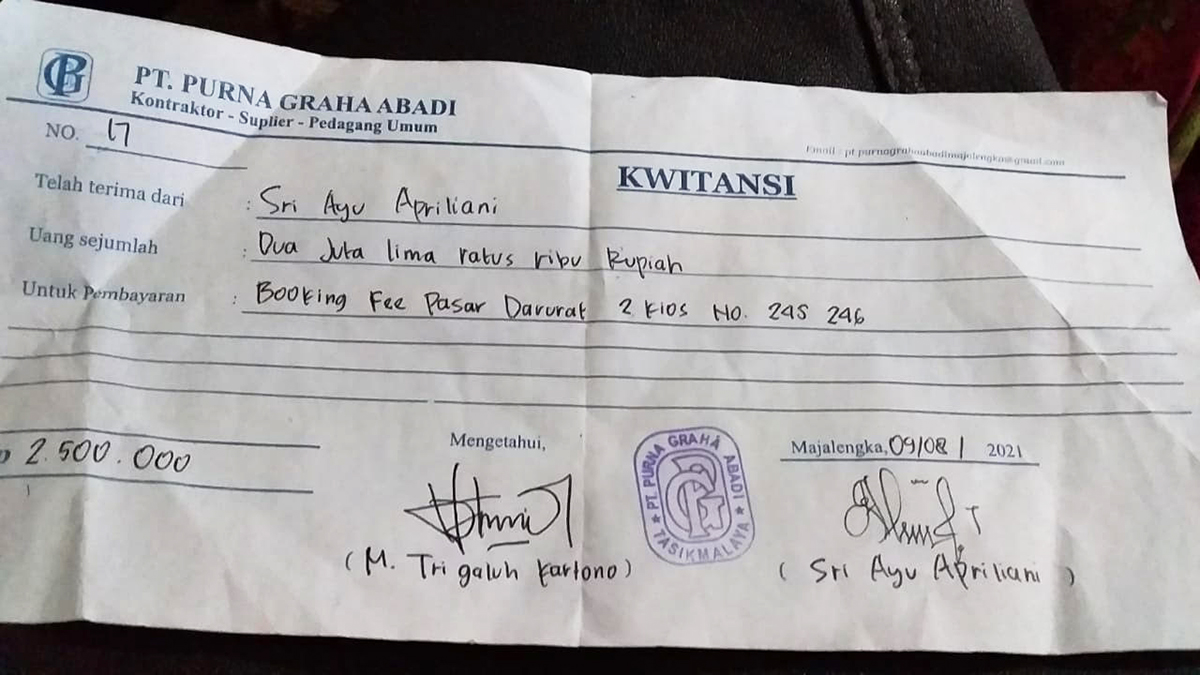 PT. PURNA GRAHA ABADI
Kontraktor - Suplier - Pedagang Umum
NO. 17
Email : pt.purnagrahaabadimajalengka@gmail.com
KWITANSI
Telah terima dari : Sri Ayu Apriliani
Uang sejumlah : Dua Juta lima ratus ribu Rupiah
Untuk Pembayaran : Booking Fee Pasar Darurat 2 Kios No. 245 246
2.500.000
Mengetahui,
Majalengka, 09/08/ 2021
PT. PURNA GRAHA ABADI
TASIKMALAYA
(M. Tri galuh Kartono)
( Sri Ayu Apriliani )